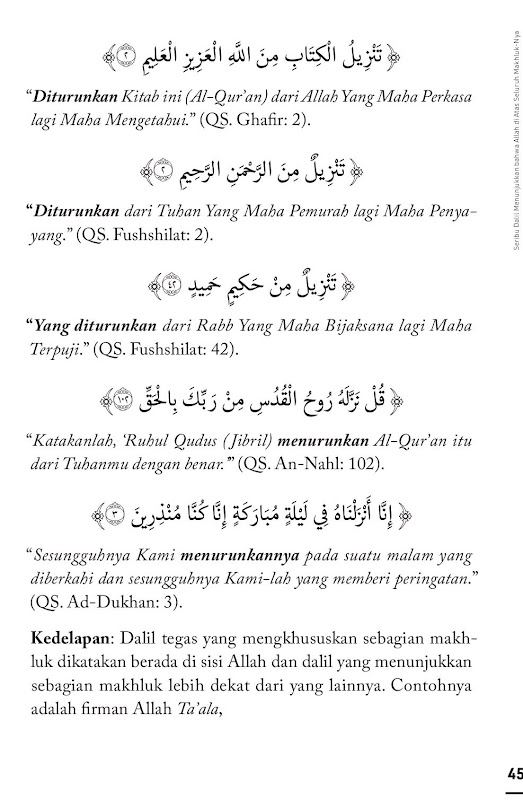 ﴿ تَنْزِيلُ الْكِتَابِ مِنَ اللَّهِ الْعَزِيزِ الْعَلِيمِ ٢ ﴾
“Diturunkan Kitab ini (Al-Qur’an) dari Allah Yang Maha Perkasa
lagi Maha Mengetahui.” (QS. Ghafir: 2).
﴿ تَنْزِيلٌ مِنَ الرَّحْمَنِ الرَّحِيمِ ٢ ﴾
“Diturunkan dari Tuhan Yang Maha Pemurah lagi Maha Penya-
yang.” (QS. Fushshilat: 2).
﴿ تَنْزِيلٌ مِنْ حَكِيمٍ حَمِيدٍ ٤٢ ﴾
“Yang diturunkan dari Rabb Yang Maha Bijaksana lagi Maha
Terpuji.” (QS. Fushshilat: 42).
﴿ قُلْ نَزَّلَهُ رُوحُ الْقُدُسِ مِنْ رَبِّكَ بِالْحَقِّ ١٠٢ ﴾
“Katakanlah, ‘Ruhul Qudus (Jibril) menurunkan Al-Qur’an itu
dari Tuhanmu dengan benar.’” (QS. An-Nahl: 102).
﴿ إِنَّا أَنْزَلْنَاهُ فِي لَيْلَةٍ مُبَارَكَةٍ إِنَّا كُنَّا مُنْذِرِينَ ٣ ﴾
“Sesungguhnya Kami menurunkannya pada suatu malam yang
diberkahi dan sesungguhnya Kami-lah yang memberi peringatan.”
(QS. Ad-Dukhan: 3).
Kedelapan: Dalil tegas yang mengkhususkan sebagian makh-
luk dikatakan berada di sisi Allah dan dalil yang menunjukkan
sebagian makhluk lebih dekat dari yang lainnya. Contohnya
adalah firman Allah Ta’ala,
Seribu Dalil Menunjukkan bahwa Allah di Atas Seluruh Makhluk-Nya
45